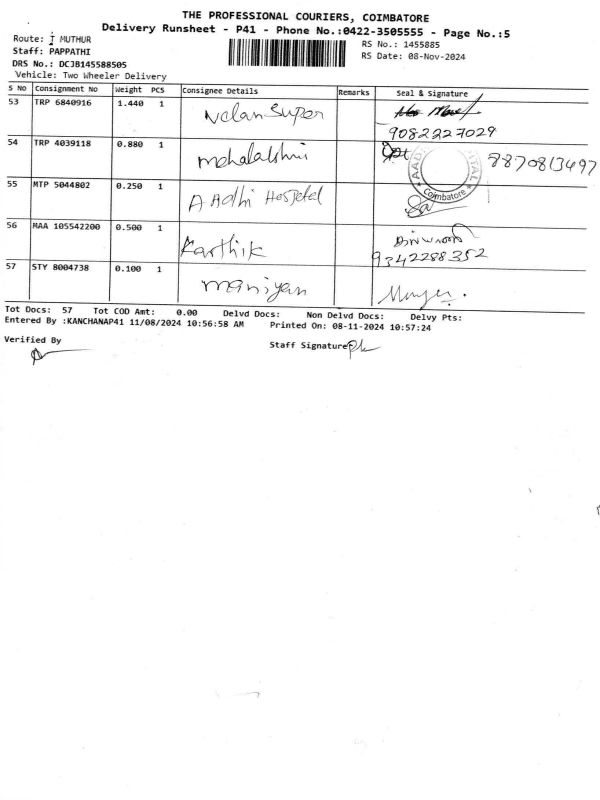 THE PROFESSIONAL COURIERS, COIMBATORE
Delivery Runsheet - P41 - Phone No.:0422-3505555 - Page No.:5
Route: I MUTHUR
RS No.: 1455885
Staff: PAPPATHI
RS Date: 08-Nov-2024
DRS No.: DCJB145588505
Vehicle: Two Wheeler Delivery
S No Consignment No Weight PCS Consignee Details Remarks Seal & Signature
53 TRP 6840916 1.440 1 Nclan Super
9082227029
54 TRP 4039118 0.880 1 mahalakshmi 8870813497
55 MTP 5044802 0.250 1 AAdhi Hospital
Coimbatore
56 MAA 105542200 0.500 1 Karthik
9342288352
57 STY 8004738 0.100 1 maniyan
Tot Docs: 57 Tot COD Amt: 0.00 Delvd Docs: Non Delvd Docs: Delvy Pts:
Entered By :KANCHANAP41 11/08/2024 10:56:58 AM Printed On: 08-11-2024 10:57:24
Verified By
Staff Signature